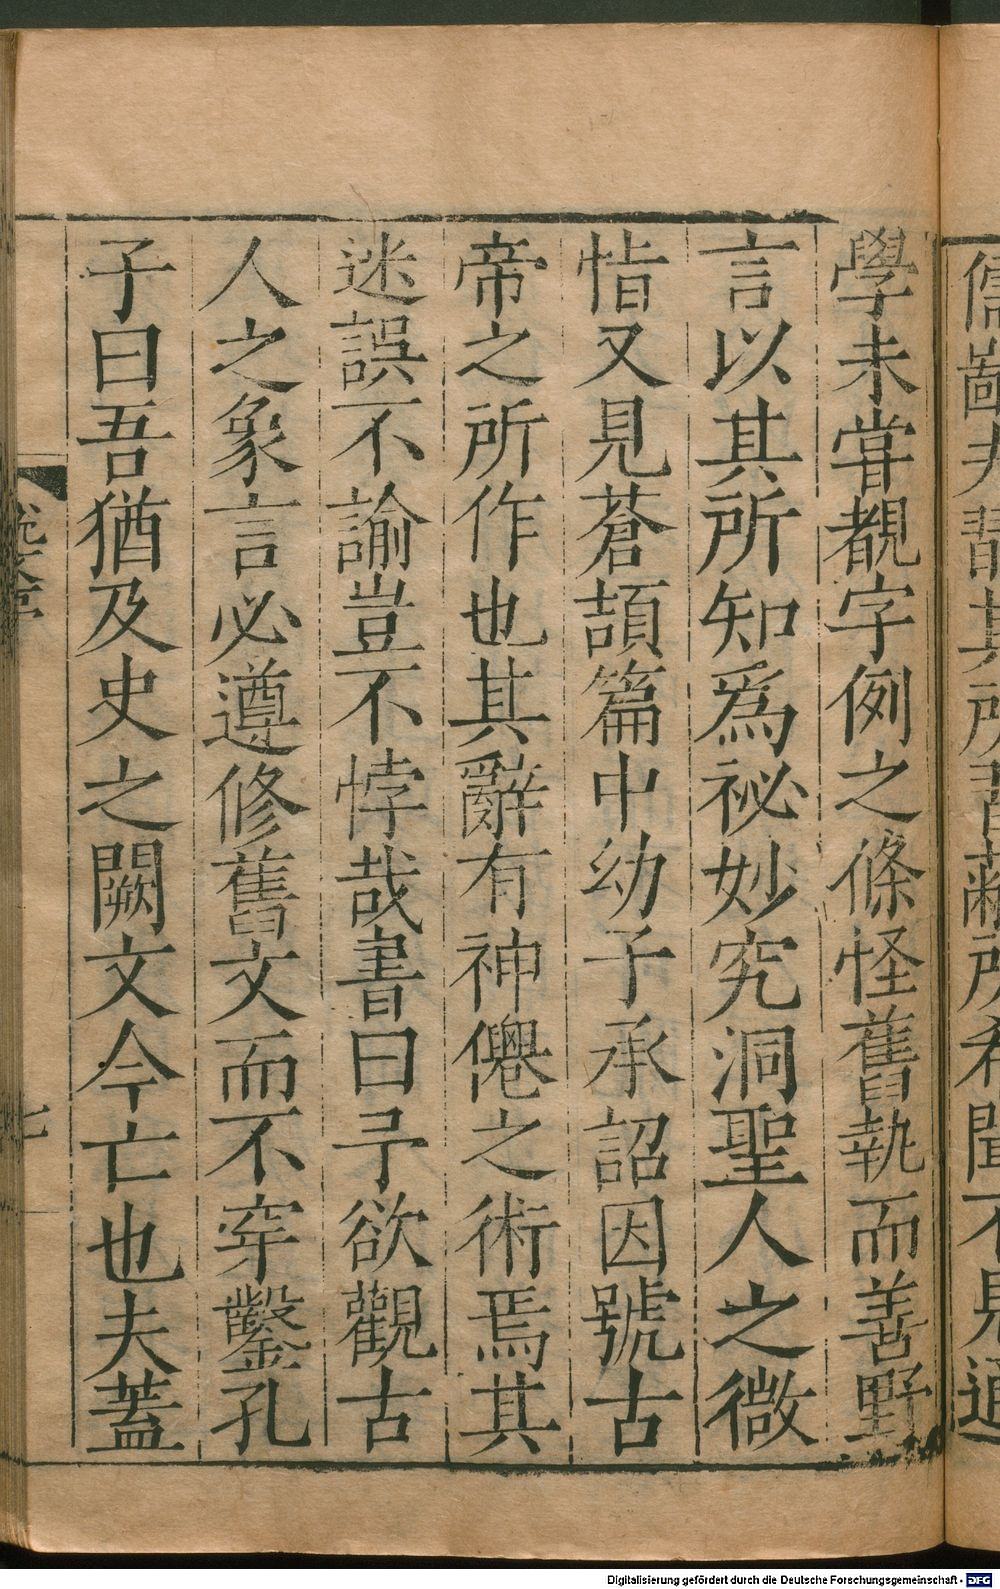 其所希聞不見通
學未甞覩字例之條怪舊執而善野
言以其所知爲祕妙究洞聖人之微
恉又見蒼頡篇中幼子承詔因號古
帝之所作也其辭有神僊之術焉其
迷誤不諭豈不悖哉書曰予欲觀古
人之象言必遵修舊文而不穿鑿孔
子曰吾猶及史之闕文今亡也夫蓋
七
Digitalisierung gefördert durch die Deutsche Forschungsgemeinschaft - DFG